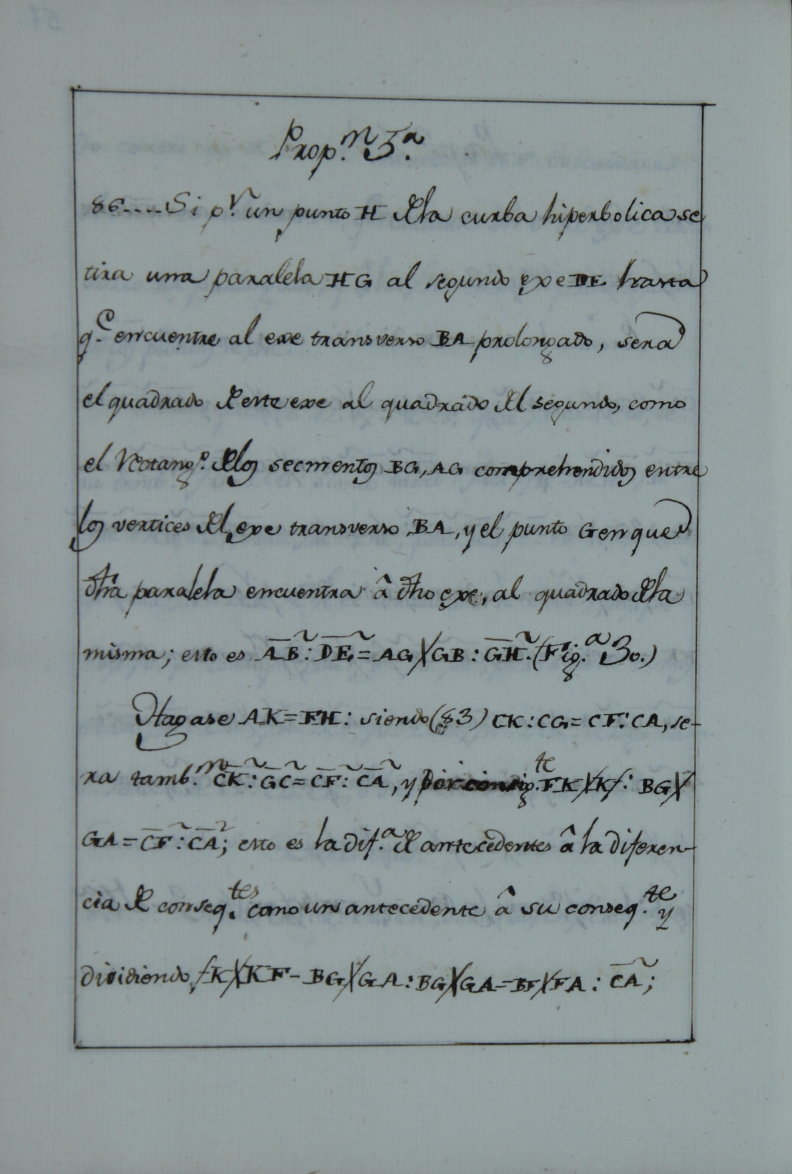 Prop.n 5.a
86....Si p.r un punto H dela curba hiperbolica se
tira una paralela HG al segundo exe DE hasta
q.e encuentre al exe transverso BA prolongado, serà
el quadrado de este exe al quadrado del segundo, como
el Rectang.o delos secmentos BG, AG comprehendidos entre
los vertices del exe transverso BA, y el punto G en que
dha paralela encuentra â dho exe, al quadrado dela
misma; esto es A͞B²: D͞E² = AG X GB : G͞H². (Fig.a 30.)
Hagase AK=FH: siendo (83) CK:CG=CF:CA, se-
ra tamb.n C͞K²: G͞C² = C͞F²: C͞A², y por consig.te FK X Kf: BG X
GA = C͞F²: C͞A²; esto es la dif.a de antecedentes â la diferen-
cia de conseq.tes como un antecedente â su conseq.te y
dividiendo, fK X KF - BG X GA : BG X GA = BF X FA : C͞A²;